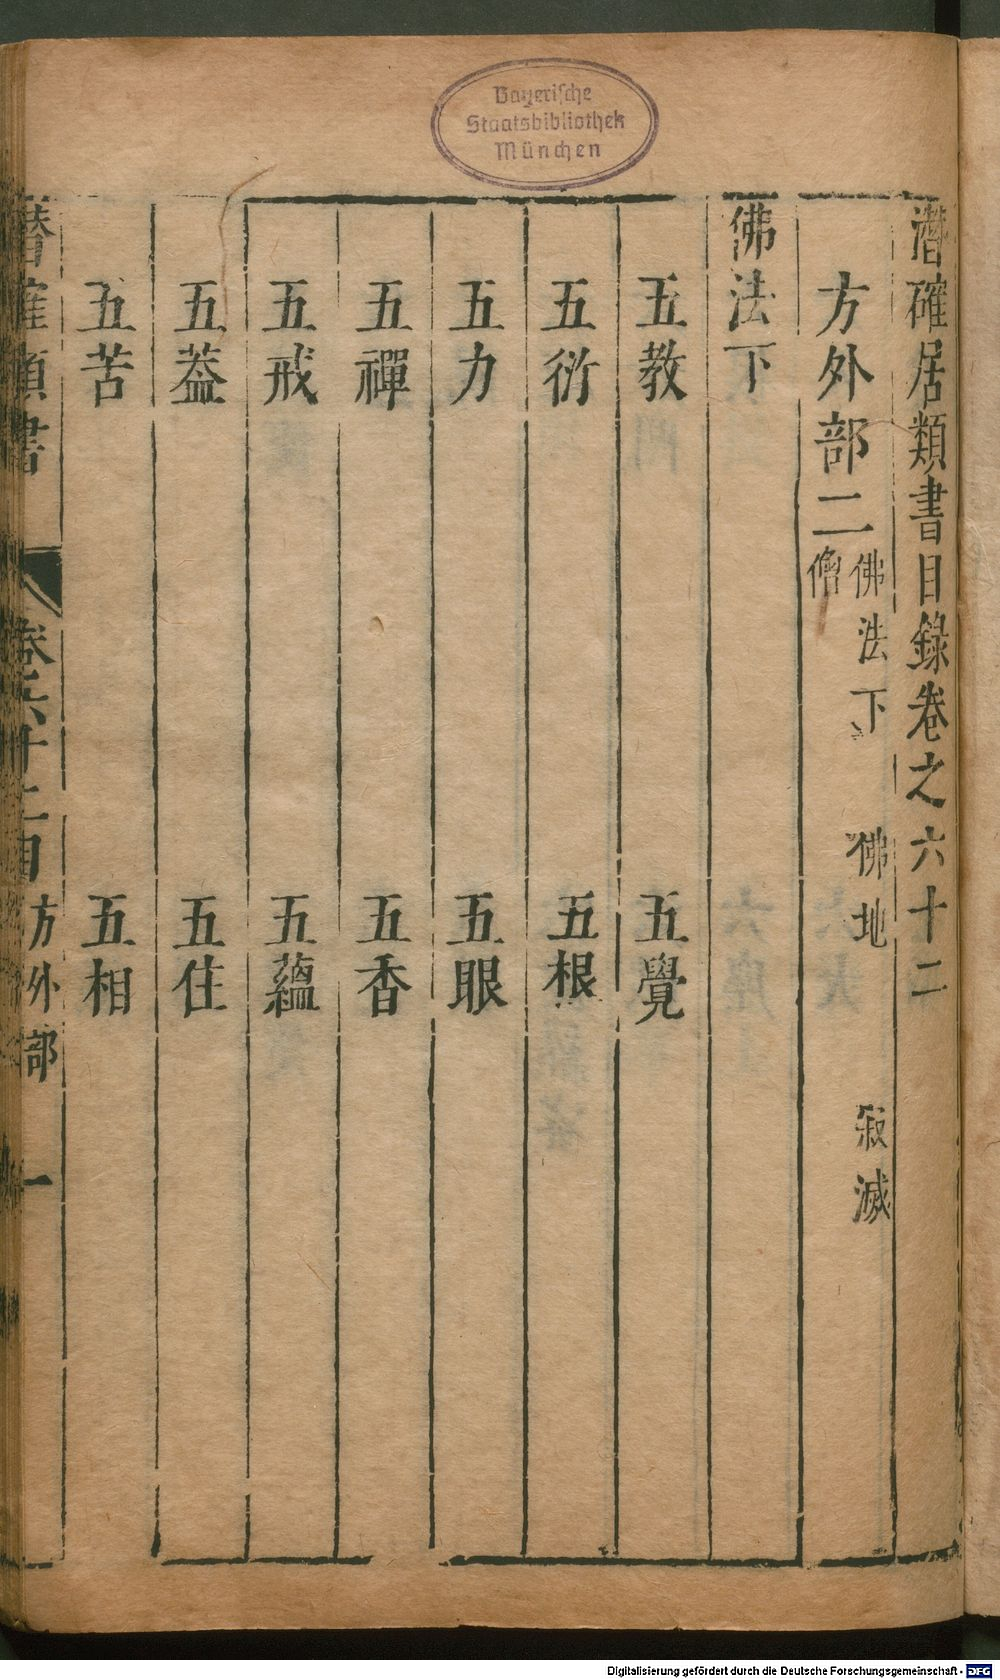 Bayerische
Staatsbibliothek
München
潛確居類書目錄卷之六十二
方外部二 佛法下 佛地 寂滅
僧
佛法下
五教 五覺
五衍 五根
五力 五眼
五禪 五香
五戒 五蘊
五蓋 五住
五苦 五相
潛確類書 卷六十二目 方外部 一
Digitalisierung gefördert durch die Deutsche Forschungsgemeinschaft - DFG